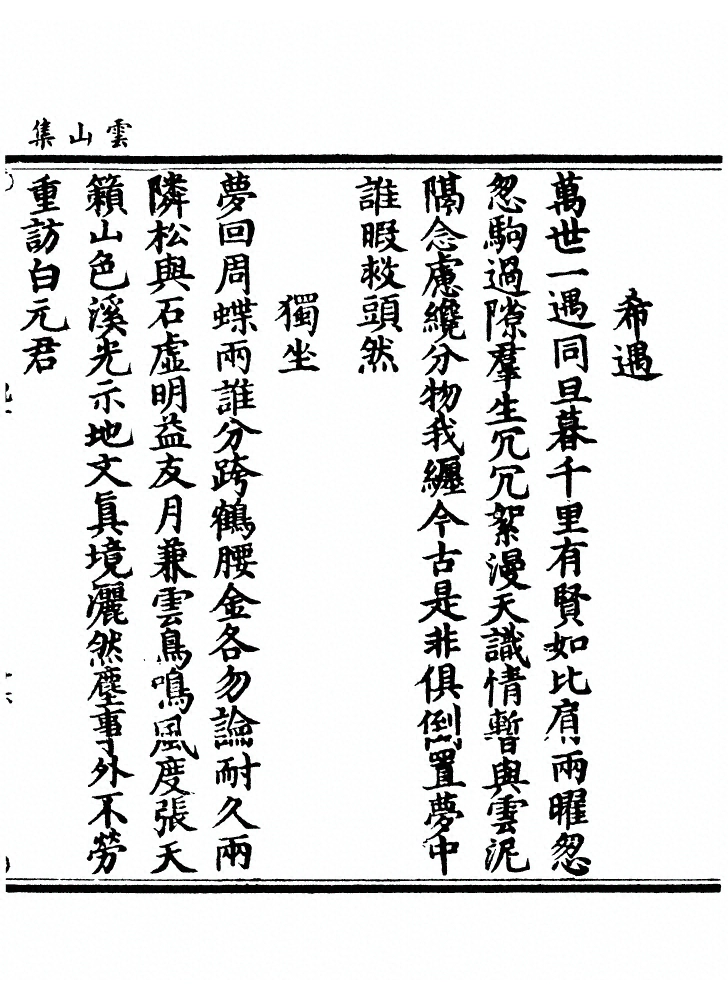 雲山集
希遇
萬世一遇同旦暮千里有賢如比肩兩曜忽
忽駒過隙羣生冗冗絮漫天識情暫與雲泥
隔念慮纔分物我纏今古是非俱倒置夢中
誰暇救頭然
獨坐
夢回周蝶兩誰分跨鶴腰金各勿論耐久兩
隣松與石虛明益友月兼雲鳥鳴風度張天
籟山色溪光示地文眞境灑然塵事外不勞
重訪白元君